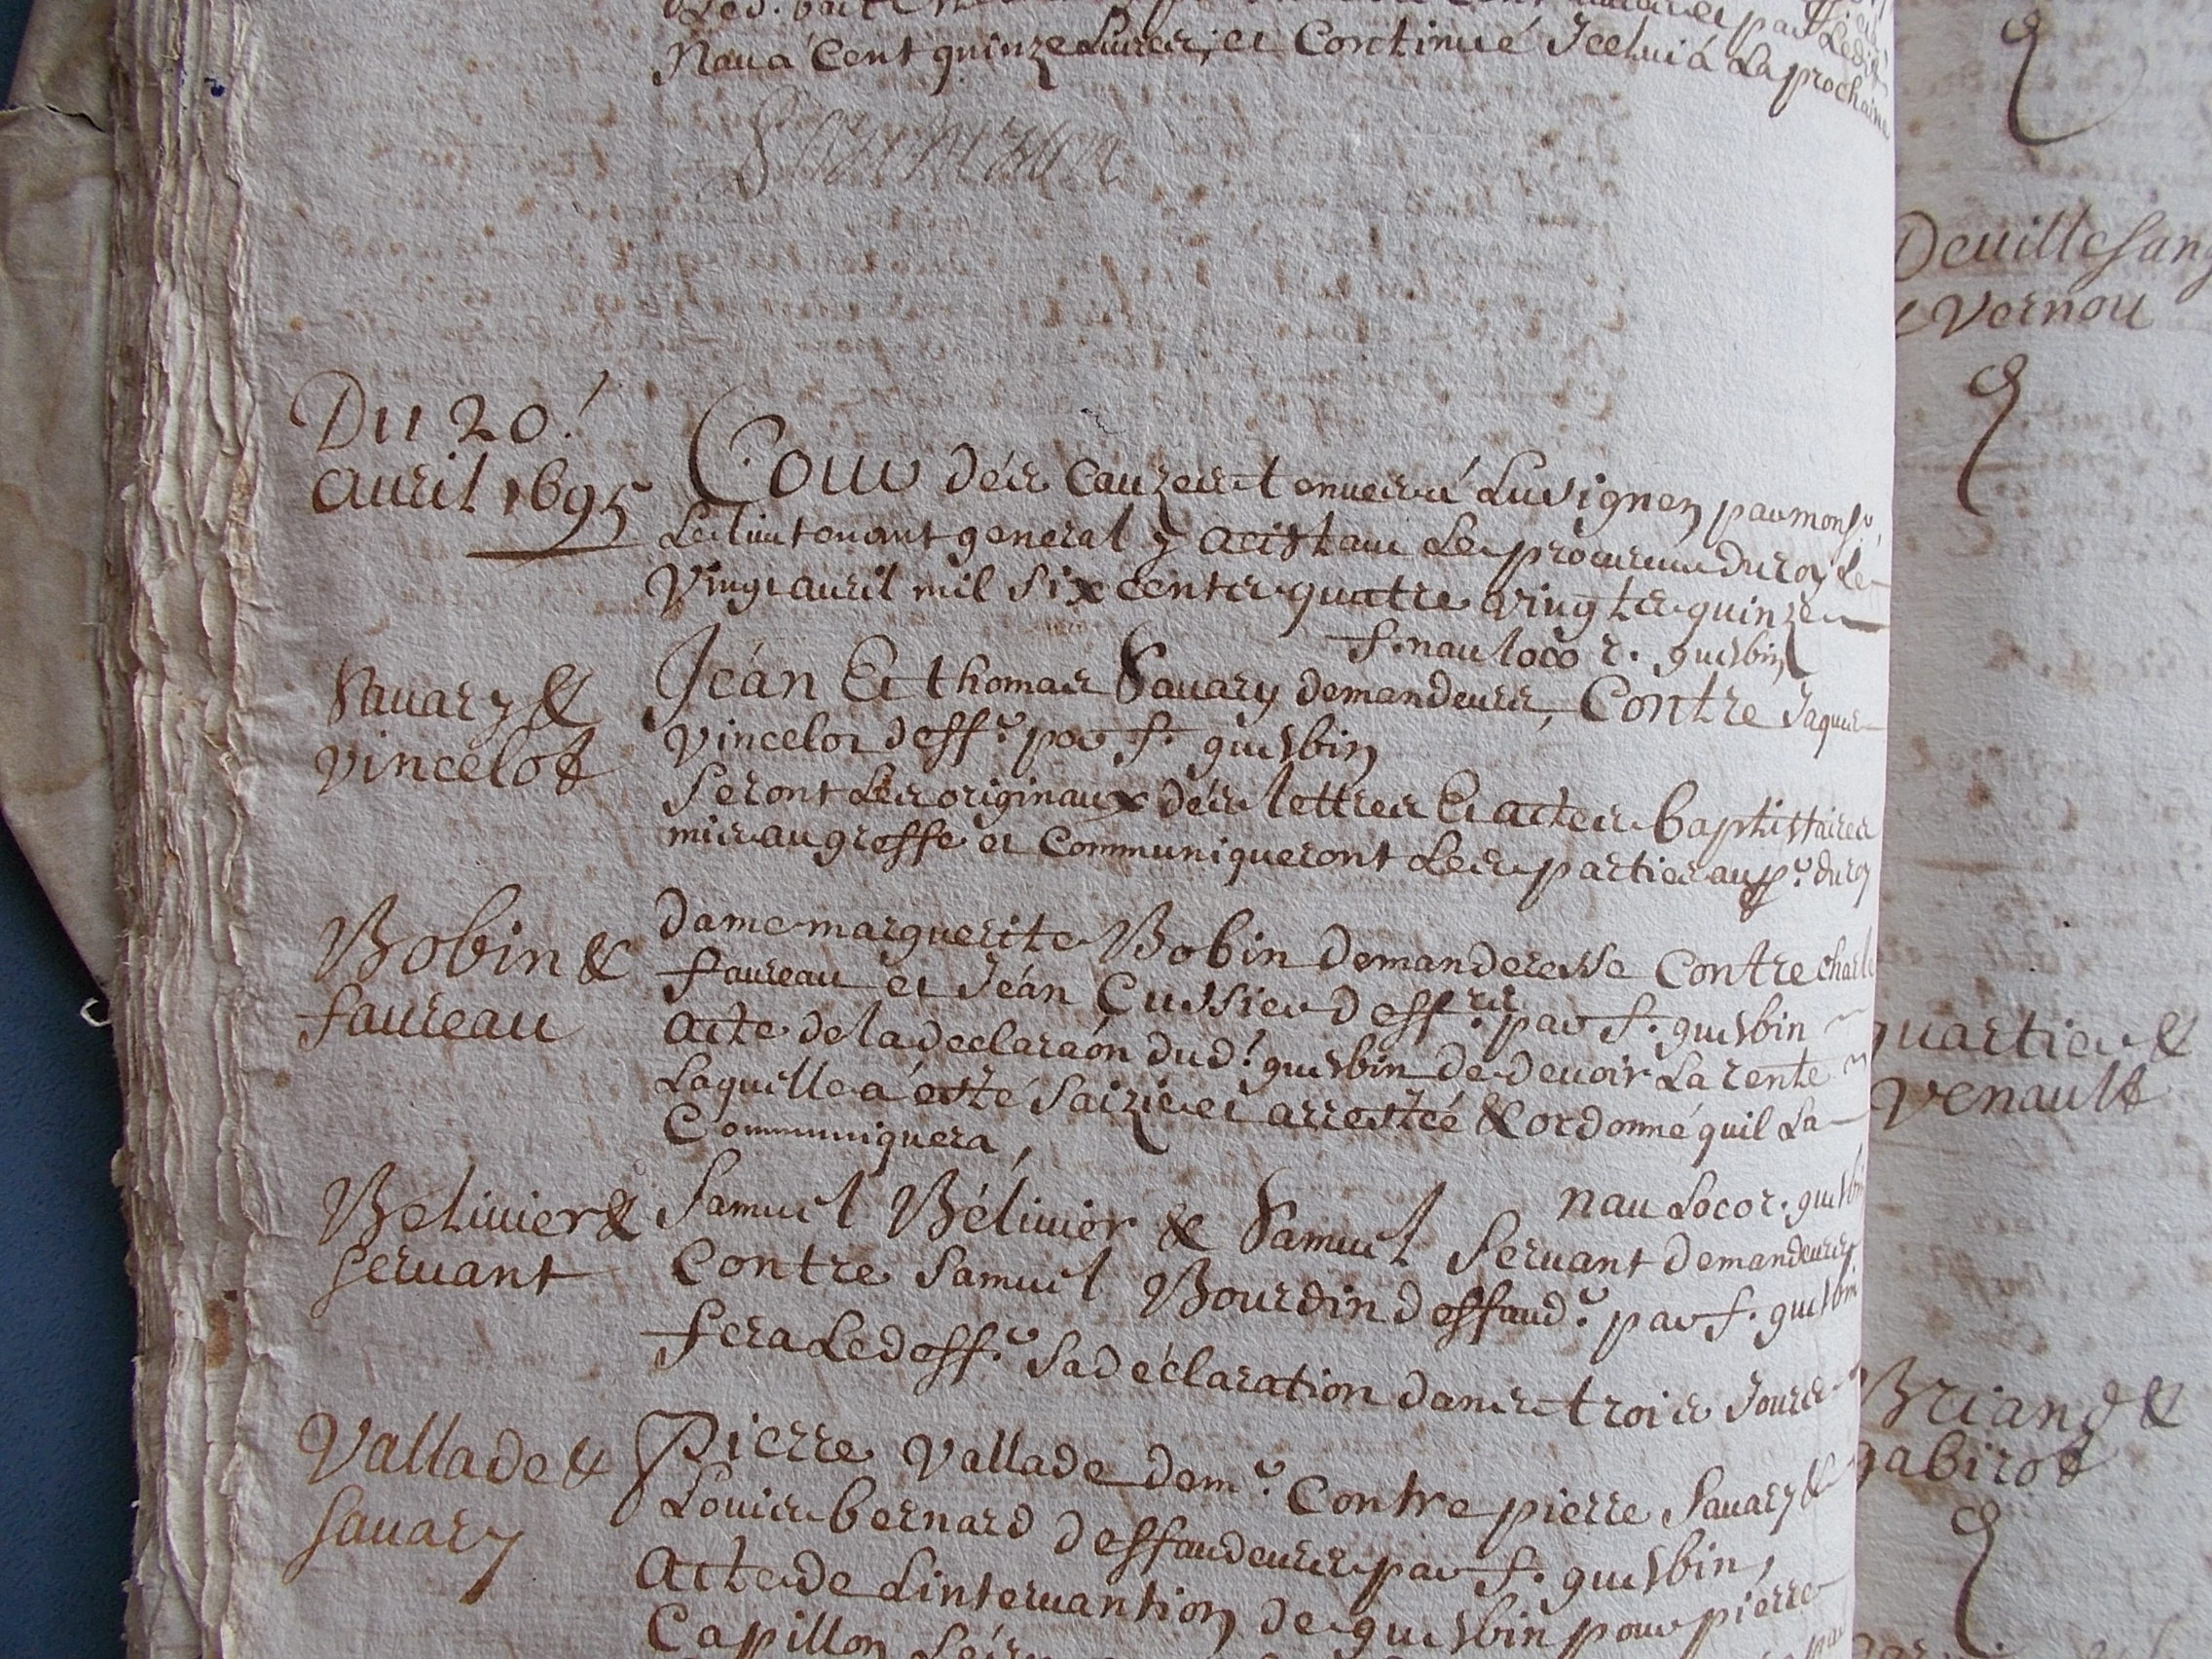 Nau a Cent quinze Liures, et Continué Icelui á La prochaine
Du 20.e
auril 1695
Cour des Cauzes tenues á Lusignen par monsr.
Le lieutenant general y acistant Le procureur du roy le
Vingt auril mil six cents quatre vingts quinze
f. nau loco r. guesbin
Sauary &
vincelot
Jean Et thomas Sauary demandeurs, Contre Jaques
vincelot deff.r par f. guesbin
Seront Les originaux des lettres Et actes baptistaires
mis au greffe et Communiqueront Les parties au p.r du roy
Bobin &
faureau
dame marguerite Bobin demanderesse Contre charle
faureau et Jean Cussier deff.rs par f. guesbin
acte de la declaraon dud.t guesbin de deuoir La rente
Laquelle a esté saizie et arrestée & ordonné quil La
Communiquera,
nau Loco r. guesbin
Beliuier &
seruant
Samuel Béliuier & Samuel Seruant demandeurs
Contre Samuel Bourdin deffand.r par f. guesbin
fera Led deff.r Sa déclaration dans trois Jours
Vallade &
sauary
Pierre Vallade dem.r Contre pierre Sauary &
Louis bernard deffandeurs par f. guesbin,
acte de L'interuantion de guesbin pour pierre
Capillon
Deuillesang
& Vernou
quartier &
venault
Briand &
gabirot